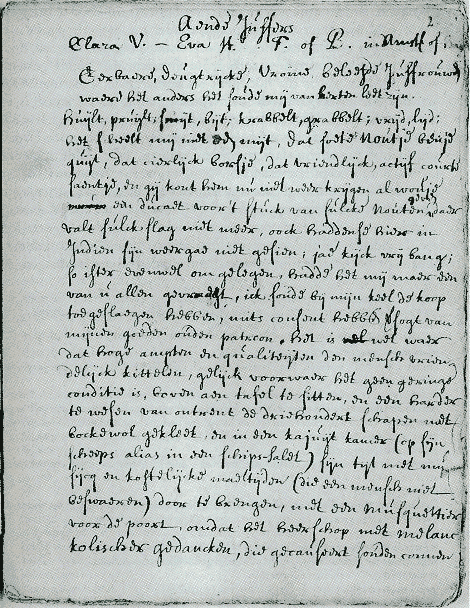 2
Aende Juffers
Clara V. – Eva H. F. of L. in Amst of
Eerbaere, deugtrijcke, vrome, beleefde Juffrouwen
waere het anders het soude mij van herten leet zijn.
Huylt, pruylt, bijt, krabbelt, grabbelt; vrijd, lijd;
het scheelt mij niet een mijt, dat soete Noutje bentje
quijt, dat cierlijck borsje, dat vriendlijck, actijf courts
haentje, en gij kont hem nu niet weer krijgen al wouje
een ducaet voor't stuck van sulcke Nouten geven, daer
valt sulck slag niet meer, oock haddense hier in
Indien sijn weergae niet gesien; jae kijck vrij bang;
so ister evenwel om gelegen, hadde het mij maer een
van u allen gevraegt, ick soude bij mijn keel de koop
toegeslaegen hebben, mits consent hebbende van
mijnen goeden ouden patroon, het is wel waer
dat hoge ampten en qualiteijten den mensch vrien
delijck kittelen, gelijck voorwaer het geen geringe
conditie is, boven aen tafel te sitten, en een harder
te wesen van ontrent de driehondert schapen met
bockewol gekleet, en in een kajuyt kamer (op sijn
scheeps alias in een schips-salet) sijn tyt met
en kostelijcke maeltijden (die een mensch niet
beswaeren) door te brengen, met een musquettier
voor de poort, omdat het heerschop met melanc
kolischer gedancken, die gecauseert souden connen